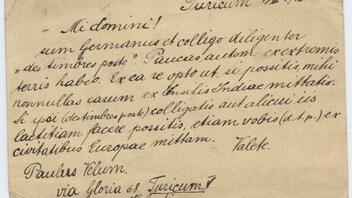 Turicum
— Mi domini!
sum Germanus et colligo diligenter
„des timbres poste". Paucas autem ex extremis
terris habeo. Ex ea re opto ut, si possitis, mihi
nonnullas earum ex Insulis Indiae mittatis.
Si ipsi (des timbres poste) colligatis aut alicui iis
laetitiam facere possitis, etiam vobis (d. t. p.) ex
civitatibus Europae mittam. Valete.
Paulus Velum.
via Gloria 68, Turicum V